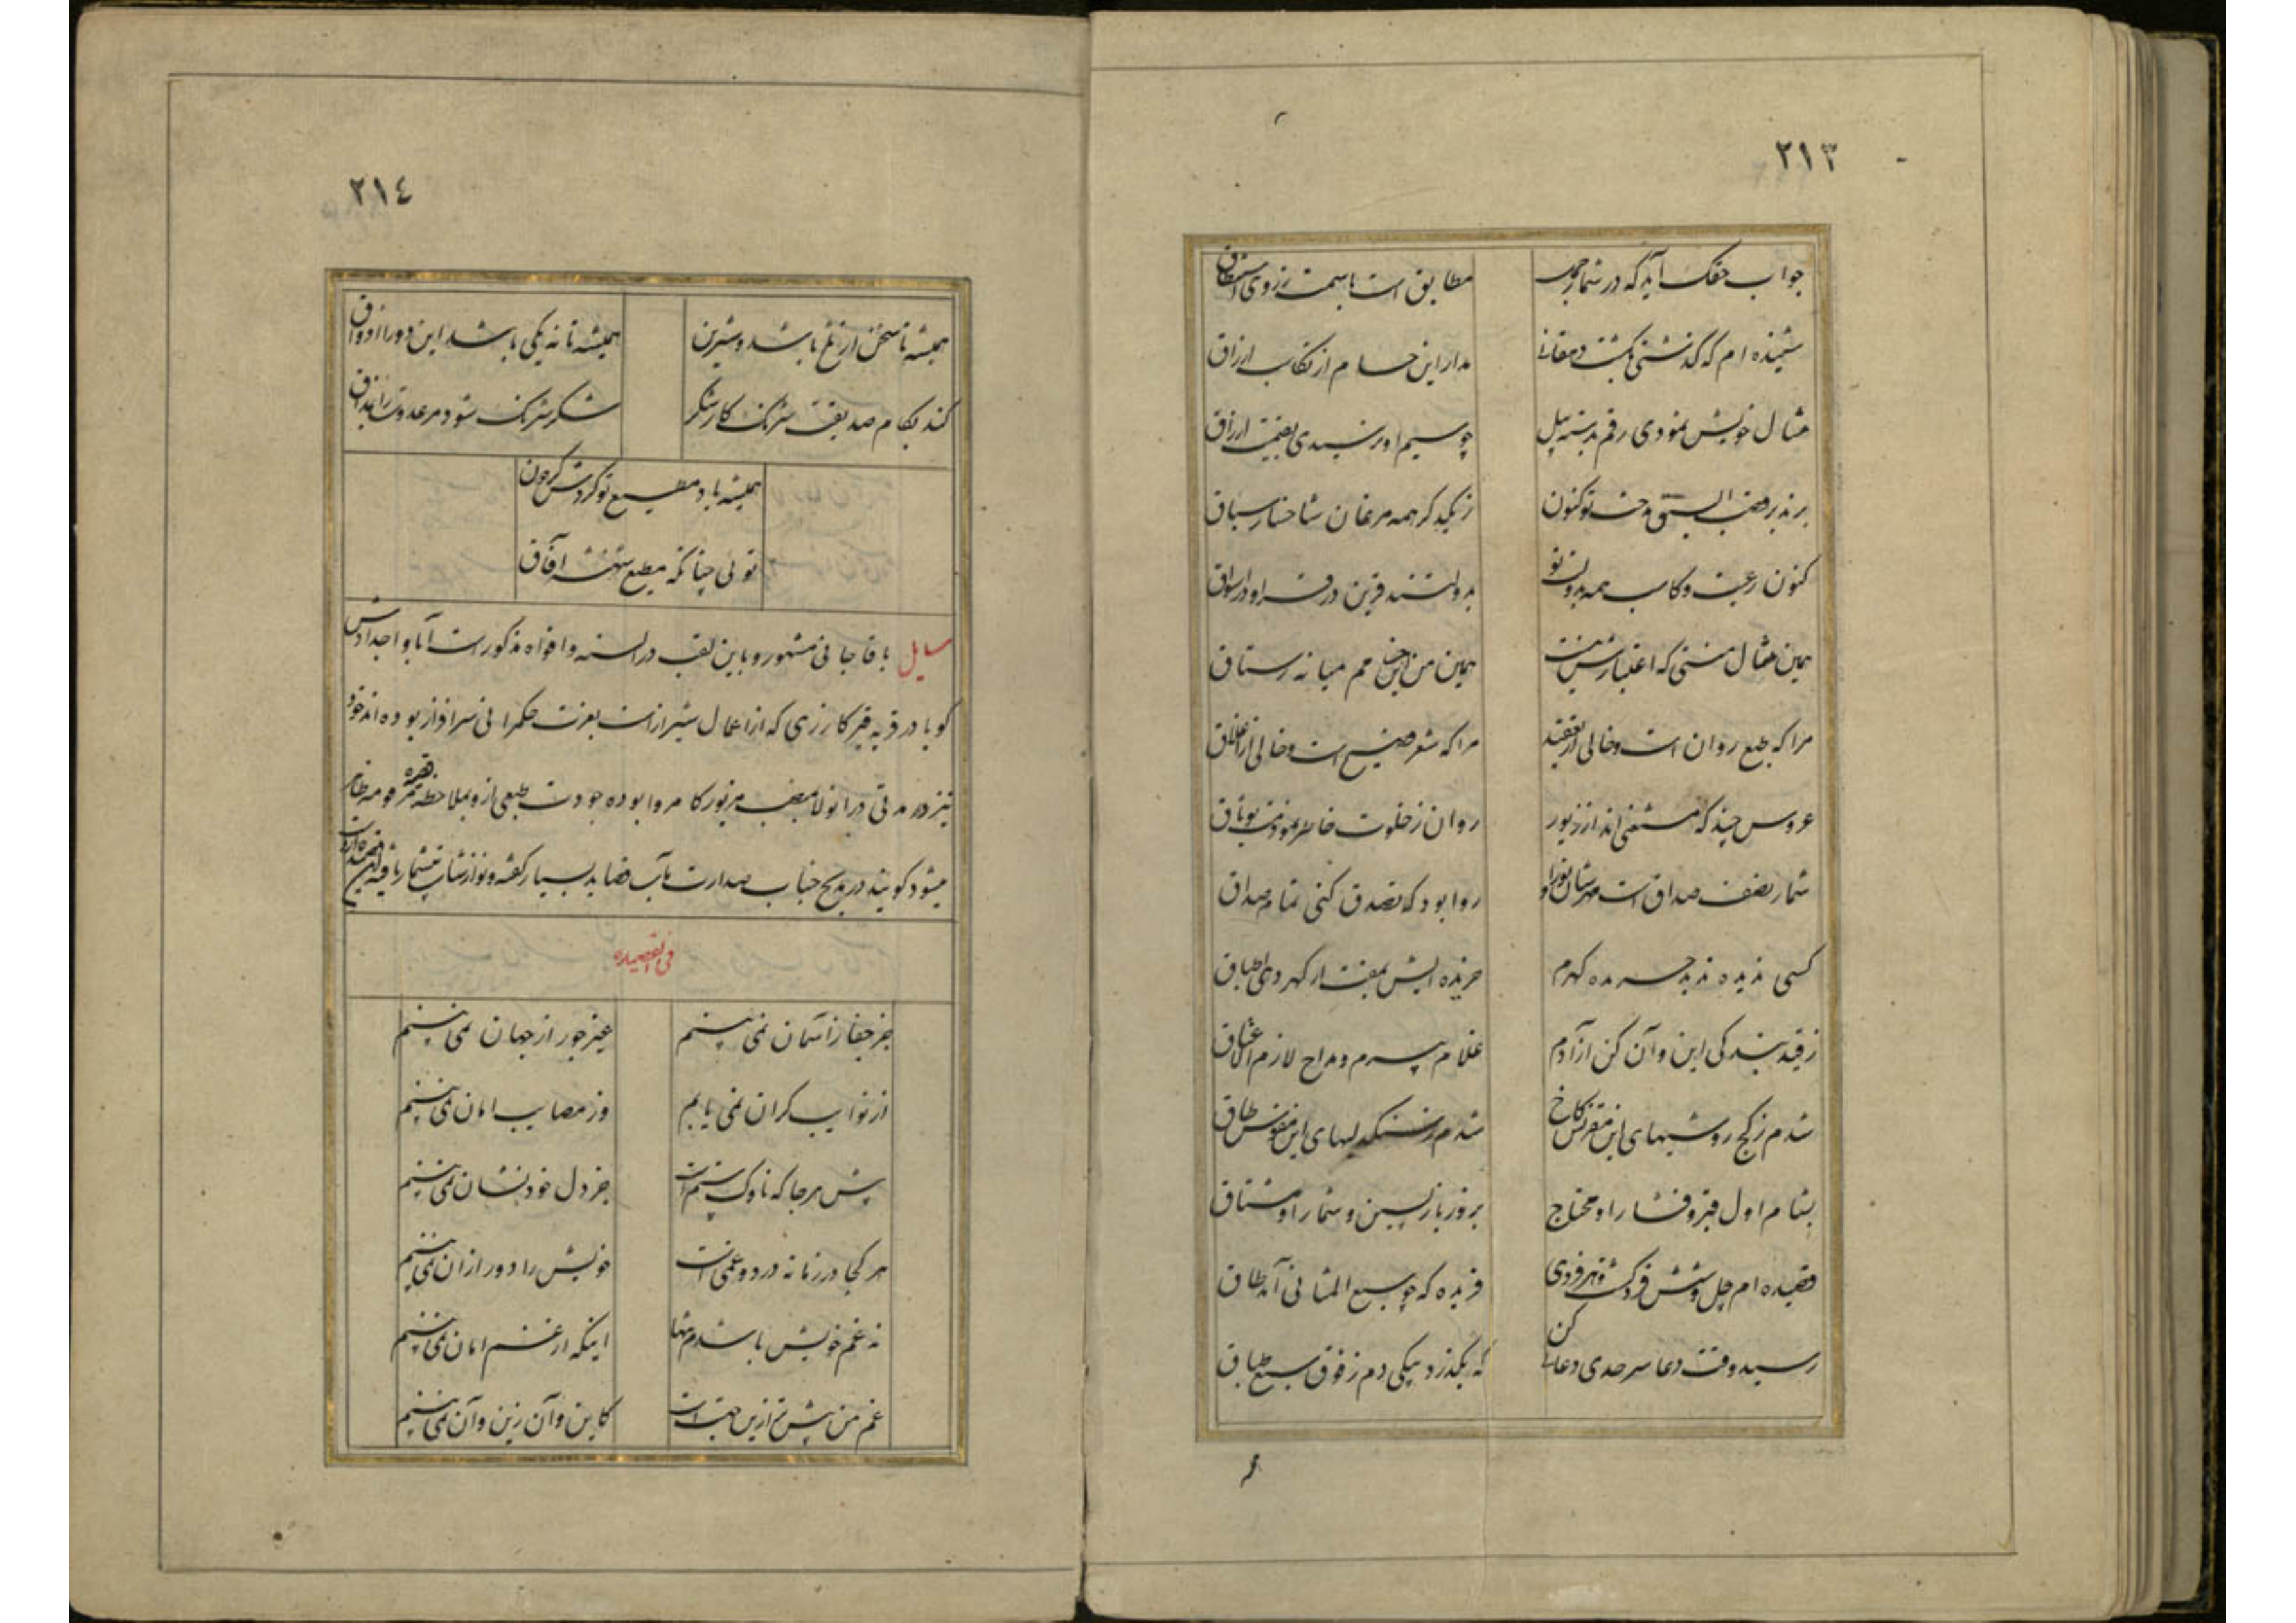 ٢١٣
جواب حقک آید که در شمار جمل مطابق است باسمت ز روی استنطاق
شنیده ام که گذشتی بکشت دهقانی مدار این حسام از نکاب ارزاق
مثال خویش نمودی رقم بدسته بیل چو سیم اوبر رسیدی بقیمت ارزاق
السبق مدحت تو کنون ز یکدگر همه مرغان شاخسار سباق
کنون رعیت و کاسب همه بدولت تو بدولتند قرین در قرا و در اسواق
همین مثال منستی که اعتبارش نیست همین من این میانه رستاق
مرا که طبع روان است و خالی از تعقید مرا که شعر فصیح است و خالی از اغلاق
عروس چند که مستغنی اند از زیور روان ز خلوت خاطر نمودمت بوثاق
شمار نصف صداق است مهرشان روا بود که تصدق کنی تمام صداق
کسی ندیده ندید کهرم خریده ایش بمقت ار کهر دهی اطباق
ز قید بندگی این و آن کن آزادم غلام پیرم و مداح لازم الاعتاق
شدم ز کج روشیهای این مقرنس کاخ شدم ز سنگدلیهای این مقوس طاق
بشام اول قبر و فشار او محتاج بروز بازپسین و شمار او مشتاق
قصیده ام چل و شش فرد گشت و هر فردی فریده که چو سبع المثانی آمد طاق
رسید وقت دعا سرحدی دعائی کن که بگذرد بیکی دم ز فوق سبع طباق
٢١٤
همیشه تا سخن ار تلخ باشد و شیرین همیشه تا نه یکی باشد این دو را اذواق
کند بکام صدیقت شرنگ کار شکر شکر شرنگ شود مر عدوت را بمذاق
همیشه باد مطیع تو گردش گردون
توئی چنانکه مطیع شهنشه آفاق
سایل باقا جانی مشهور و باین لقب در السنه و افواه مذکور است آبا و اجدادش
گویا در قریه قیر کارزی که از اعمال شیراز است بعزت حکمرانی سرافراز بوده اند خود
نیز در مدتی در آنولا بمنصب مزبور کامروا بوده جودت طبعی از و بملاحظه ظاهر
میشود گویند در مدیح جناب صدارت مآب قصاید بسیار گفته و نوازشات بیشمار یافته این قصیده از اوست
فی القصیده
جز جفا ز آسمان نمی بینم غیر جور از جهان نمی بینم
از نوایب کران نمی یابم وز مصایب امان نمی بینم
پیش هر جا که ناوک ستم است جز دل خود نشان نمی بینم
هر کجا در زمانه درد و غمی است خویش را دور از آن نمی بینم
نه غم خویش باشدم تنها اینکه از غم امان نمی بینم
غم من بیشتر ازین جهت است کاین و آن زین و آن نمی بینم